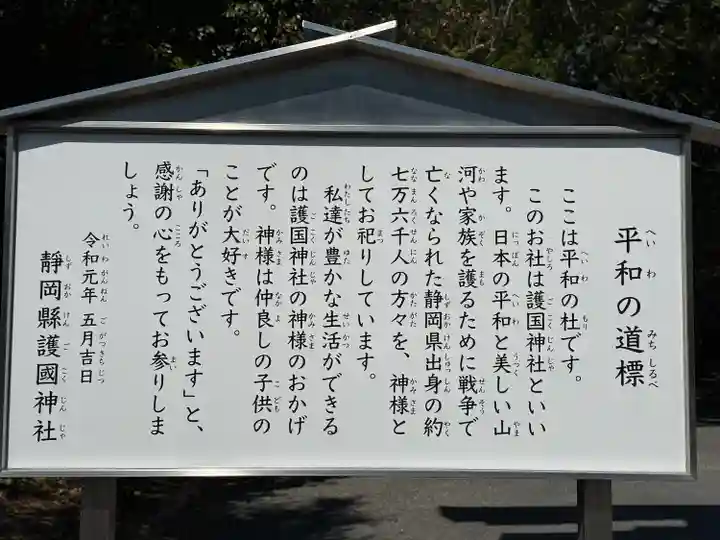 平和の道標
ここは平和の杜です。
このお社は護国神社といい
ます。日本の平和と美しい山
河や家族を護るために戦争で
亡くなられた静岡県出身の約
七万六千人の方々を、神様と
してお祀りしています。
私達が豊かな生活ができる
のは護国神社の神様のおかげ
です。神様は仲良しの子供の
ことが大好きです。
「ありがとうございます」と、
感謝の心をもってお参りしま
しょう。
令和元年 五月吉日
靜岡縣護國神社